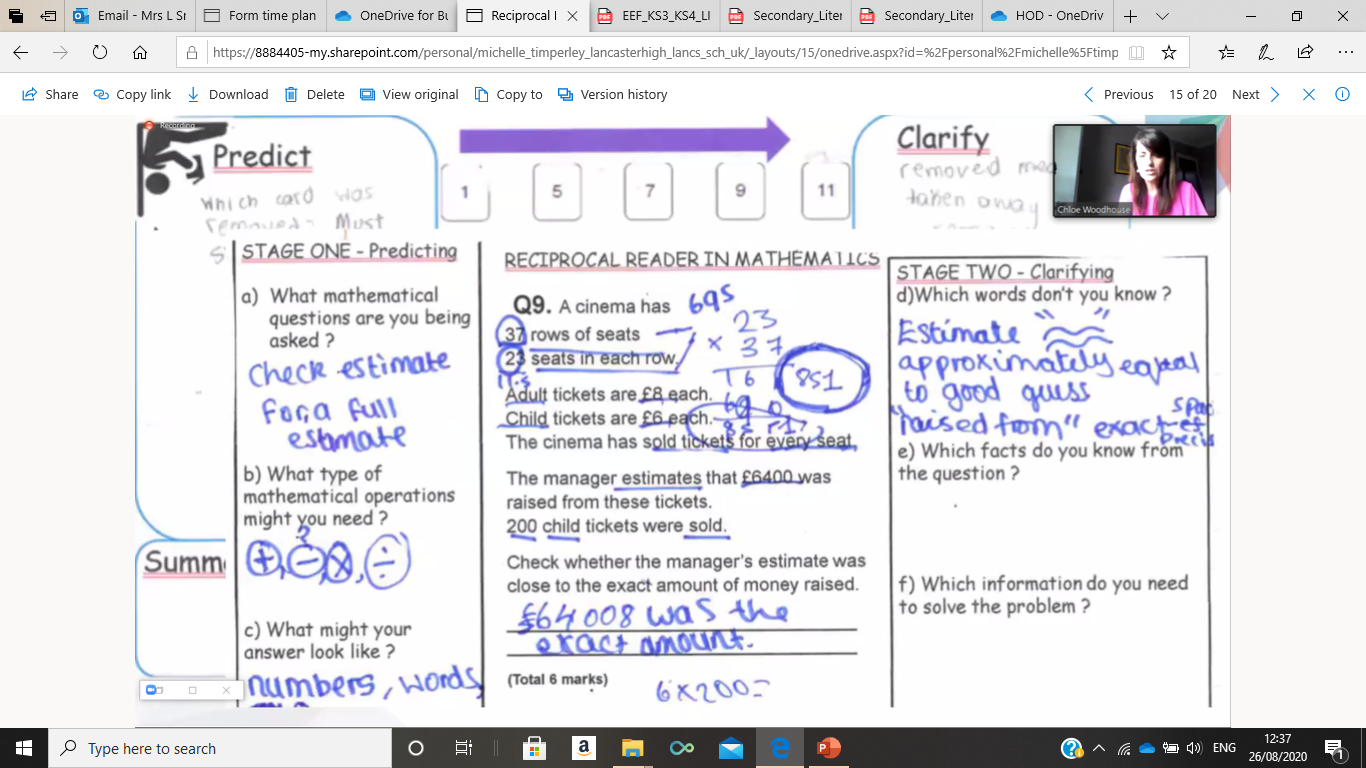 Email - Mrs L Sm
Form time plan
OneDrive for Bu
Reciprocal I
EEF_KS3_KS4_LI
Secondary_Liter
Secondary_Liter
HOD - OneDriv
https://8884405-my.sharepoint.com/personal/michelle_timperley_lancasterhigh_lancs_sch_uk/_layouts/15/onedrive.aspx?id=%2Fpersonal%2Fmichelle%5Ftimp
Share Copy link Download Delete View original Copy to Version history Previous 15 of 20 Next
Recording
Predict
which card was
removed- Must
S
1 5 7 9 11
Clarify
removed mea
taken away
Chloe Woodhouse
STAGE ONE - Predicting
a) What mathematical
questions are you being
asked ?
check estimate
For, a full
estimate
b) What type of
mathematical operations
might you need ?
?
+, -, ×, ÷
c) What might your
answer look like ?
numbers, words,
Summ
RECIPROCAL READER IN MATHEMATICS
Q9. A cinema has
37 rows of seats
23 seats in each row.
Adult tickets are £8 each.
Child tickets are £6 each.
The cinema has sold tickets for every seat.
The manager estimates that £6400 was
raised from these tickets.
200 child tickets were sold.
Check whether the manager's estimate was
close to the exact amount of money raised.
£64008 was the
exact amount.
(Total 6 marks)
6×200=
695
23
× 37
851
STAGE TWO - Clarifying
d)Which words don't you know ?
Estimate " ≈ "
approximately equal
to good guess
"raised from" exact
e) Which facts do you know from
the question ?
f) Which information do you need
to solve the problem ?
Type here to search
ENG
12:37
26/08/2020
1